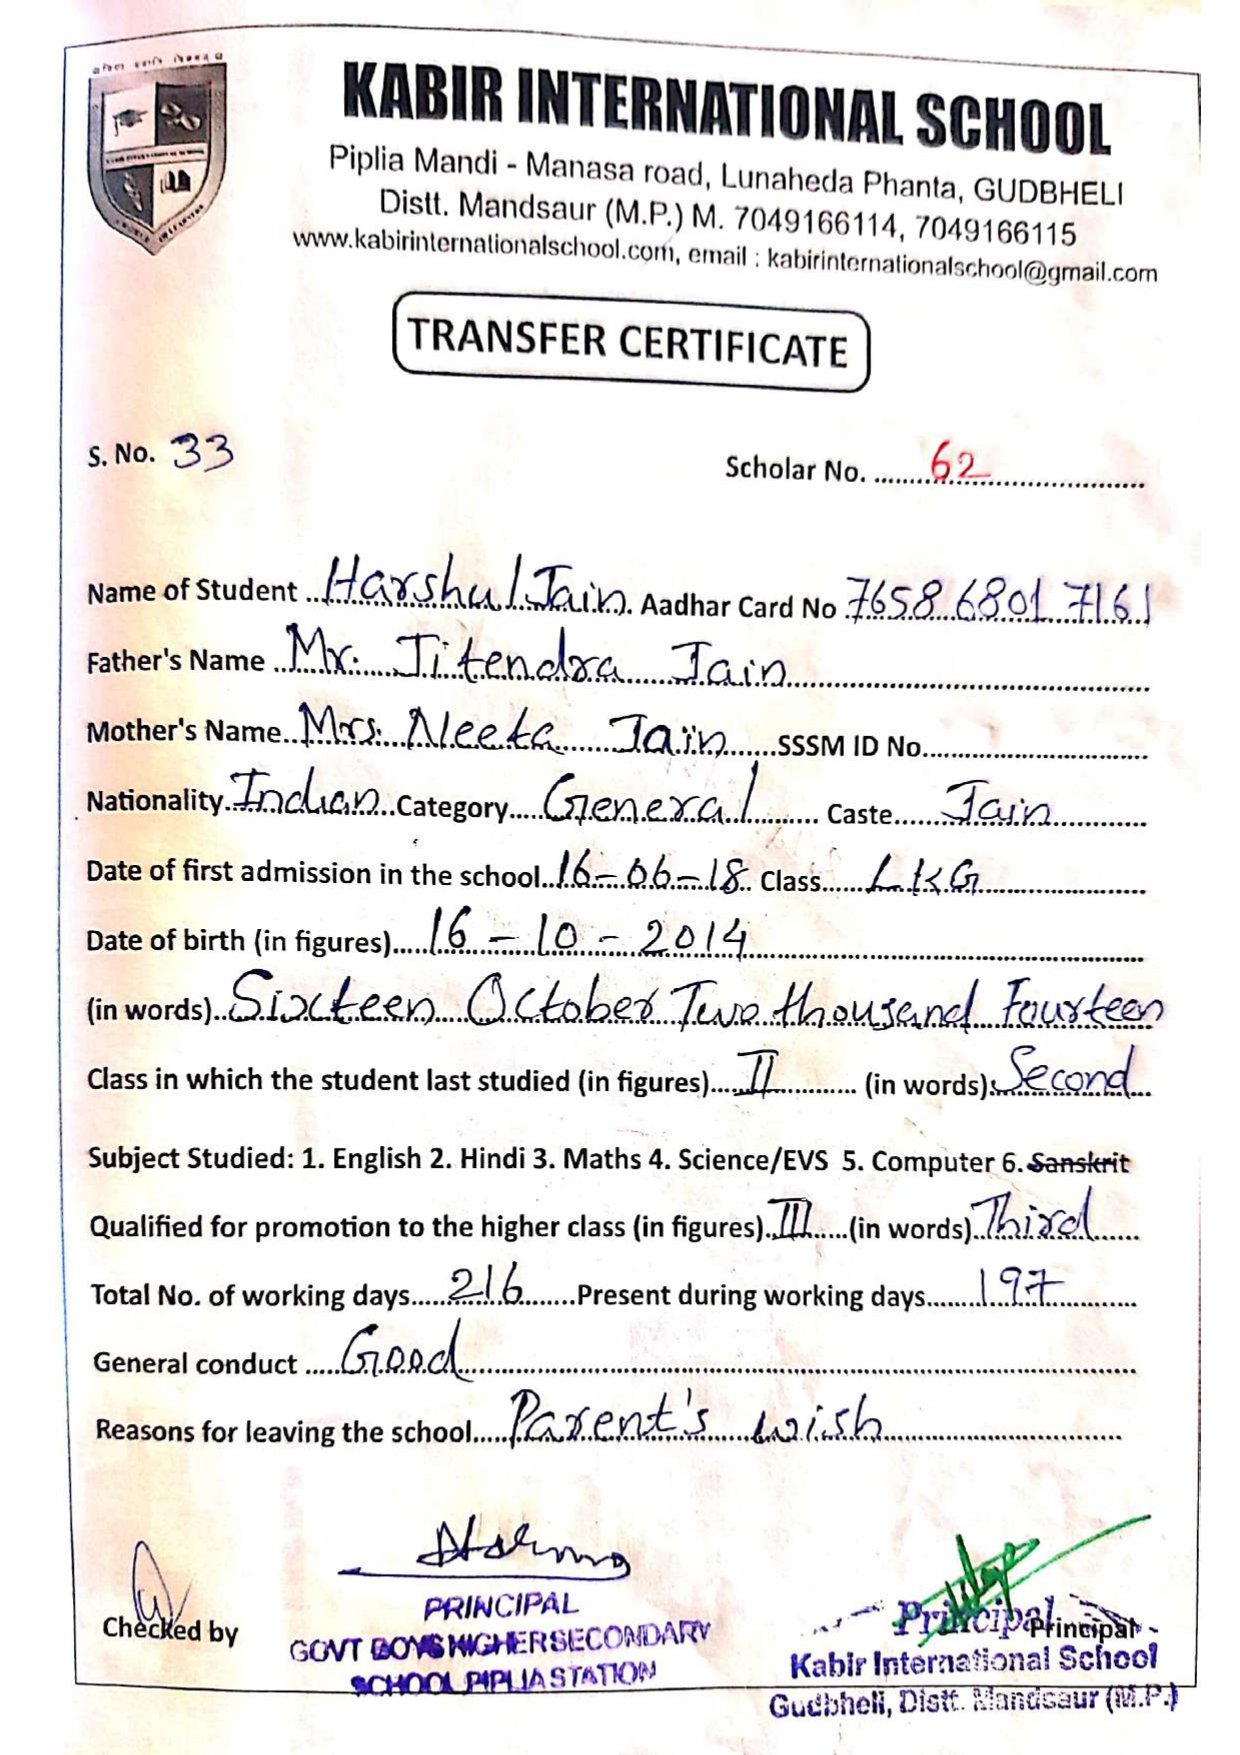 KABIR INTERNATIONAL SCHOOL
Piplia Mandi - Manasa road, Lunaheda Phanta, GUDBHELI
Distt. Mandsaur (M.P.) M. 7049166114, 7049166115
www.kabirinternationalschool.com, email : kabirinternationalschool@gmail.com
TRANSFER CERTIFICATE
S. No. 33
Scholar No. ........62........................
Name of Student ..Harshul Jain. Aadhar Card No 7658 6801 7161
Father's Name ..Mr. Jitendra Jain........................
Mother's Name..Mrs. Neeta Jain......SSSM ID No........................
Nationality.Indian..Category.....General........ Caste......Jain............
Date of first admission in the school..16-06-18. Class......LKG....................
Date of birth (in figures).....16-10-2014........................
(in words)..Sixteen October Two thousand Fourteen
Class in which the student last studied (in figures).....II........... (in words):Second...
Subject Studied: 1. English 2. Hindi 3. Maths 4. Science/EVS 5. Computer 6. Sanskrit
Qualified for promotion to the higher class (in figures)..III.....(in words)..Third......
Total No. of working days......216.......Present during working days........197............
General conduct .....Good........................
Reasons for leaving the school.....Parent's wish........................
Checked by
PRINCIPAL
GOVT BOYS HIGHER SECONDARY
SCHOOL PIPLIA STATION
Principal
Principal
Kabir International School
Gudbheli, Distt. Mandsaur (M.P.)